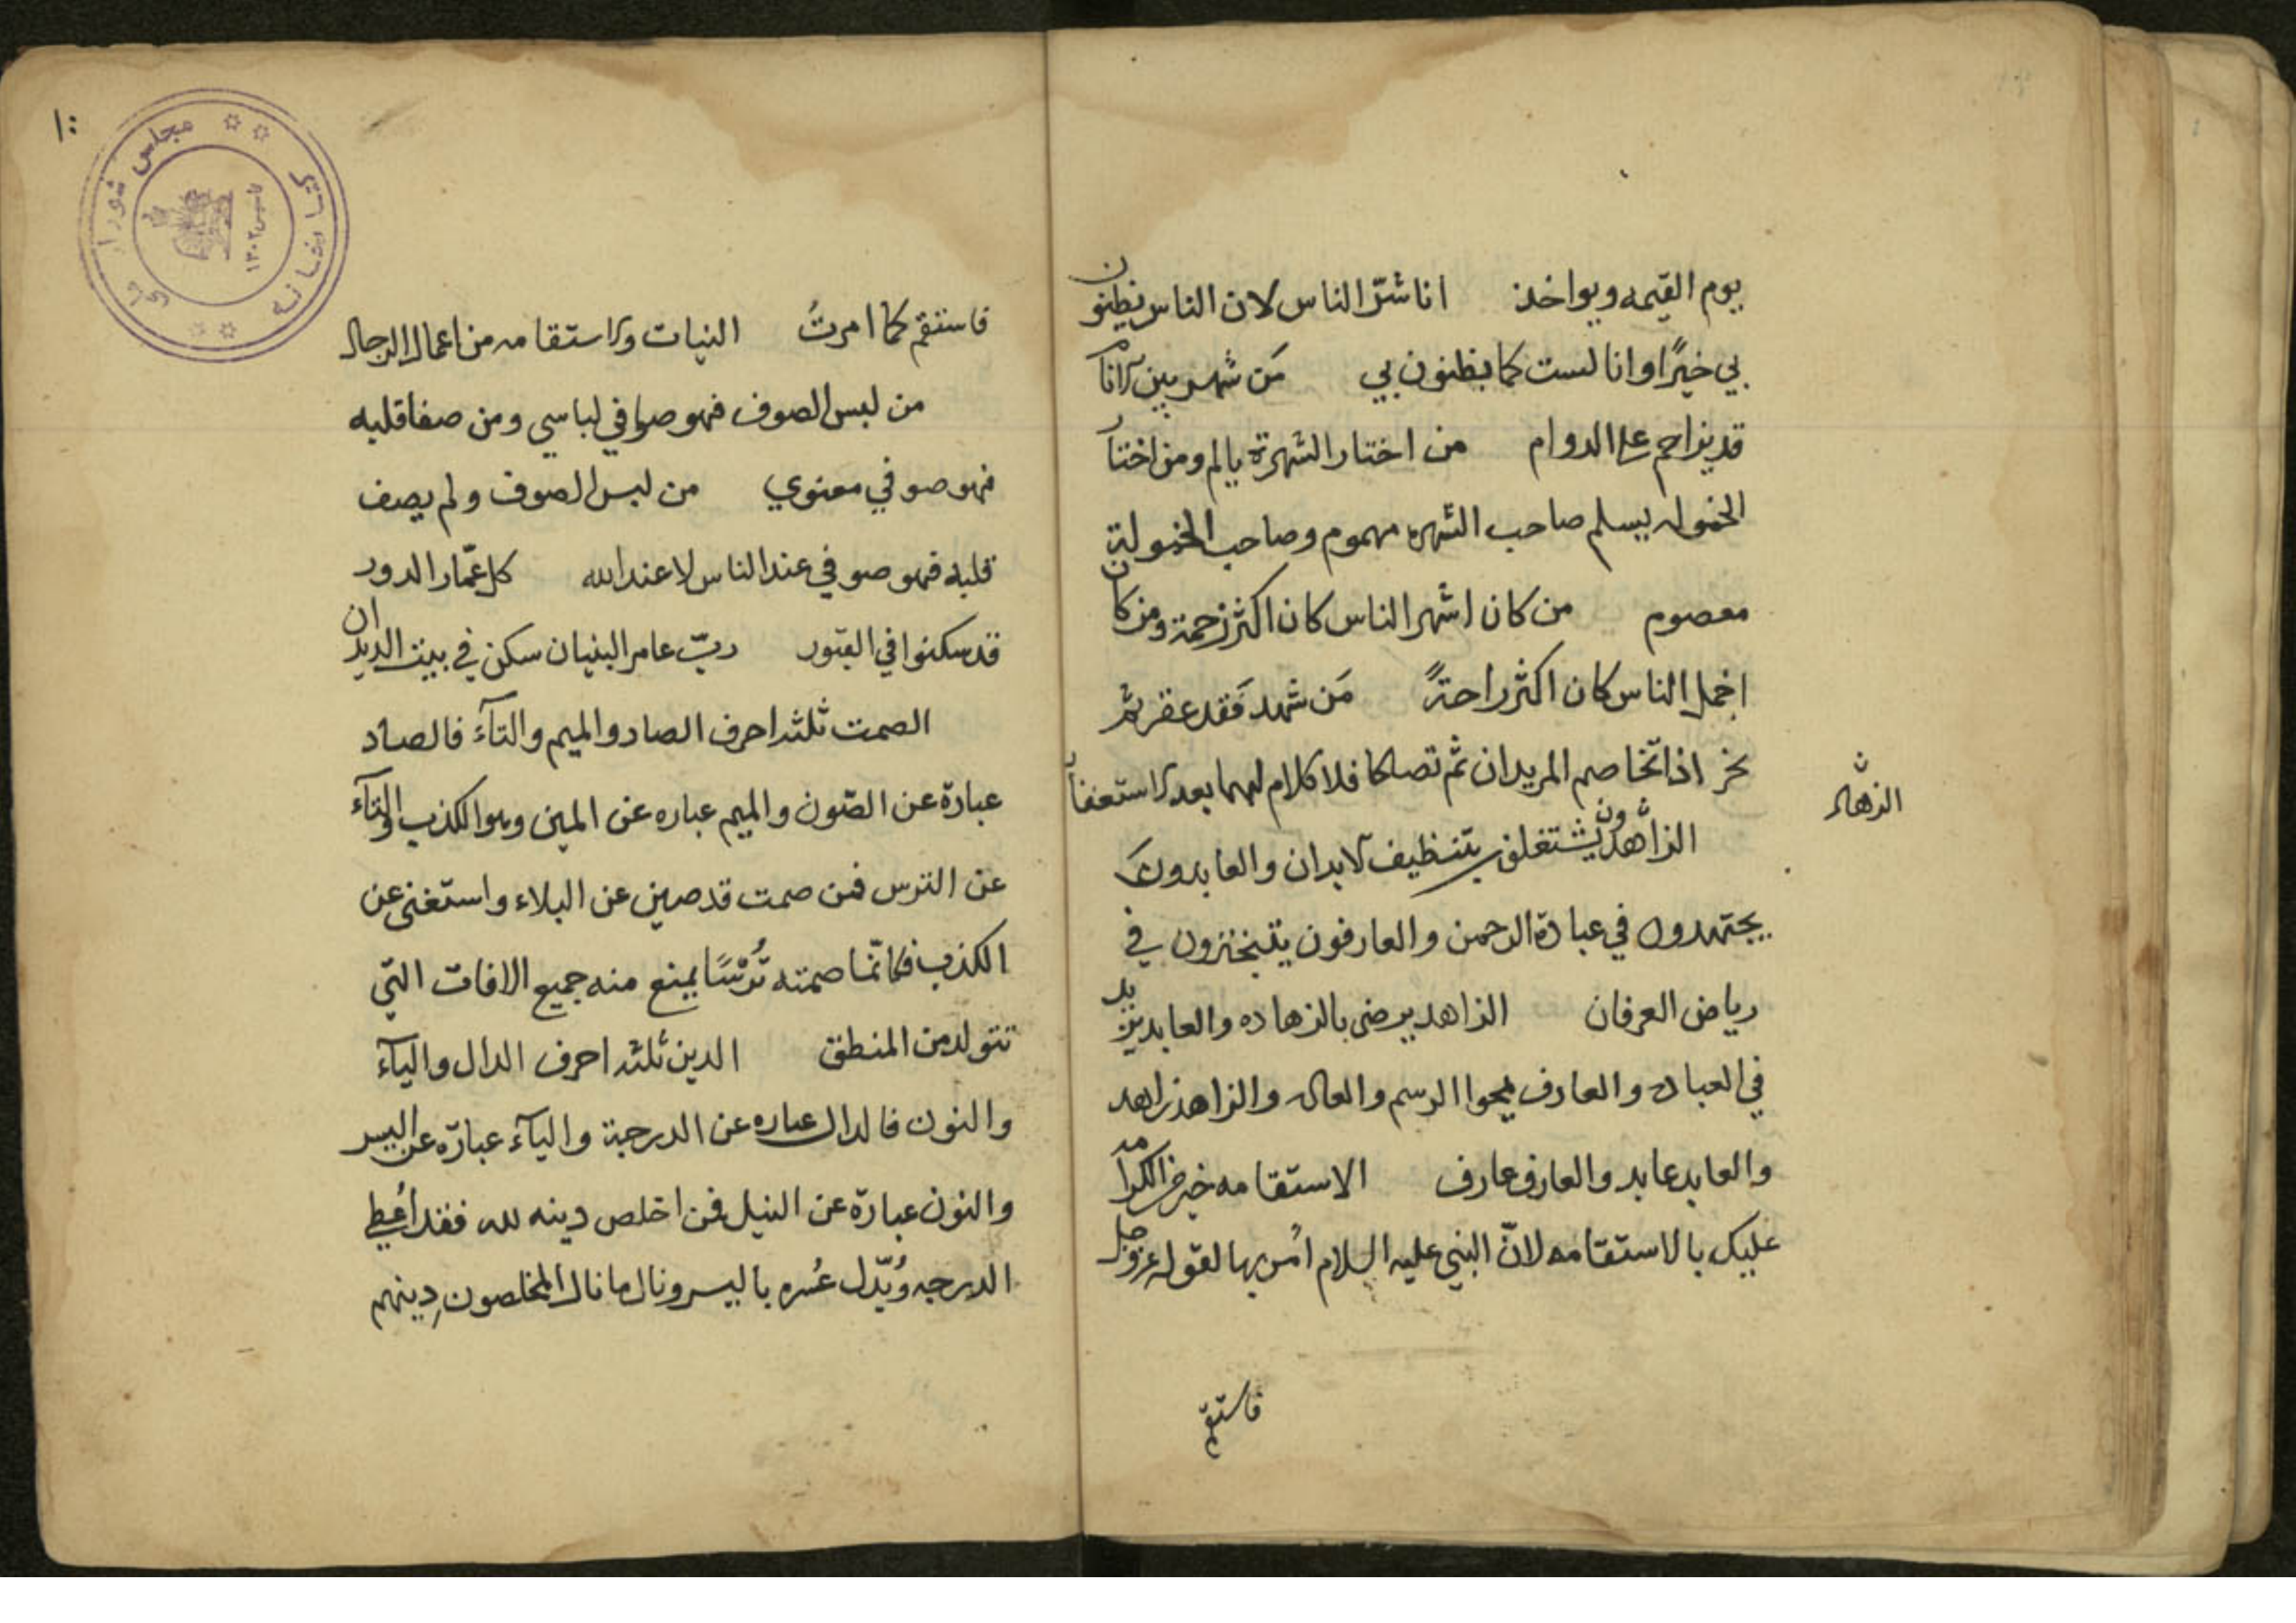 يوم القيمه ويواخذ انا شرّ الناس لان الناس يظنون
بي خيرًا وانا لست كما يظنون بي مَن شهر بين الانام
قد يزاحم على الدوام من اختار الشهرة يالم ومن اختار
الخموله يسلم صاحب الشهره مهموم وصاحب الخمولة
معصوم من كان اشهر الناس كان اكثر زحمة ومن كان
اخمل الناس كان اكثر راحةً مَن شهد فَقد عقر ثم
نحر اذا تخاصم المريدان ثم تصالحا فلا كلام لهما بعد الاستغفار
الزاهدون يشتغلون بتنظيف الابدان والعابدون
يجتهدون في عبادة الرحمن والعارفون يتبخترون في
رياض العرفان الزاهد يرضى بالزهاده والعابد يزيد
في العباده والعارف يمحوا الرسم والعاده والزاهد زاهد
والعابد عابد والعارف عارف الاستقامه خير من الكرامه
عليك بالاستقامه لانّ النبي عليه السلام اُمر بها لقوله عزوجل
فاستقم
الزهاد
١٠
كتابخانه مجلس شوراى ملى
تاسيس ١٣٠٢
فاستقم كما امرتُ النيات والاستقامه من اعمال الرجال
من لبس الصوف فهو صوفي لباسي ومن صفا قلبه
فهو صوفي معنوي من لبس الصوف ولم يصف
قلبه فهو صوفي عند الناس لا عند الله كل عمّار الدور
قد سكنوا في القبور ربّ عامر البنيان سكن في بيت الديدان
الصمت ثلثه احرف الصاد والميم والتآء فالصاد
عبارة عن الصّون والميم عباره عن المين وهو الكذب والتآء
عن الترس فمن صمت قد صين عن البلاء واستغنى عن
الكذب فكانّما صمته تُرْسًا يمنع منه جميع الافات التي
تتولد من المنطق الدين ثلثه احرف الدال واليآء
والنون فالدال عباره عن الدرجة واليآء عبارة عن اليسر
والنون عبارة عن النيل فمن اخلص دينه لله فقد اُعطي
الدرجه وبُدّل عُسره باليسر ونال ما نال المخلصون دِينهم